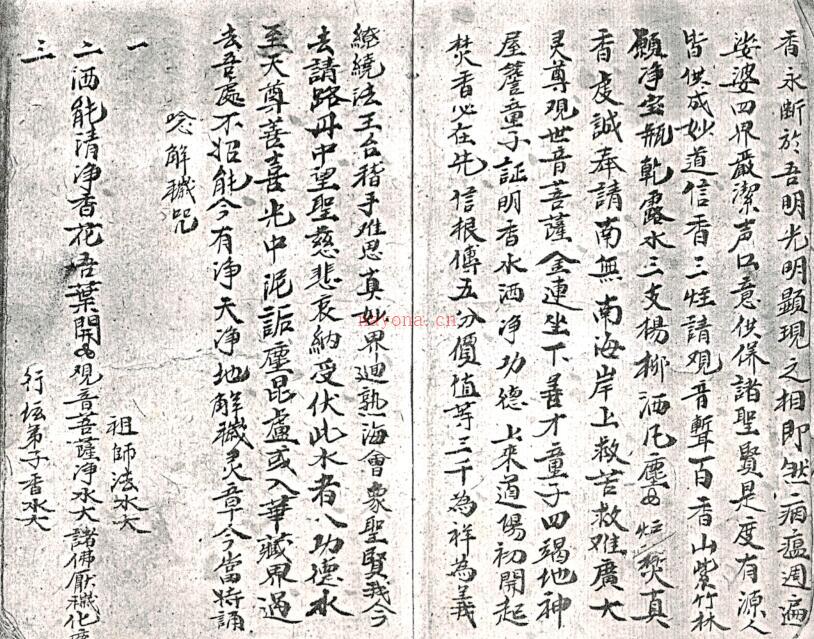 香永断於吾明光明顯現之相即然病瘟週遍
娑婆四界嚴潔声口意供保諸聖賢是度有源人
皆供成妙道信香三炷請观音暫百香山紫竹林
願净宝瓶乾露水三支楊柳洒凡塵炉焚真
香虔誠奉請南無南海岸上救苦救难廣大
灵尊观世音菩薩金連坐下善才童子四竭地神
屋簷童子証明香水洒净功德上來道陽初開起
焚香必在先信根傳五分價值等三千為祥為義
繚繞法王台稽手难思真妙界迴熟海會衆聖賢我今
去請路丹中望聖慈悲哀納受伏此水者八功德水
至天尊善喜光中泥詬塵昆盧或入華藏界過
去吾處不招能今有净天净地解穢灵章今當持誦
唸解穢咒
一 祖師法水大
二 洒能清净香花吾葉開观音菩薩净水大諸佛厭穢化
三 行坛弟子香水大
nayona.cn